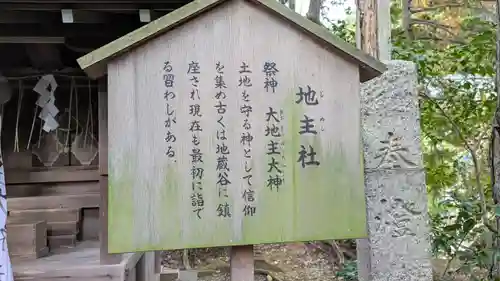 地主社
祭神 大地主大神
土地を守る神として信仰
を集め古くは地蔵谷に鎮
座され現在も最初に詣て
る習わしがある。
奉燈